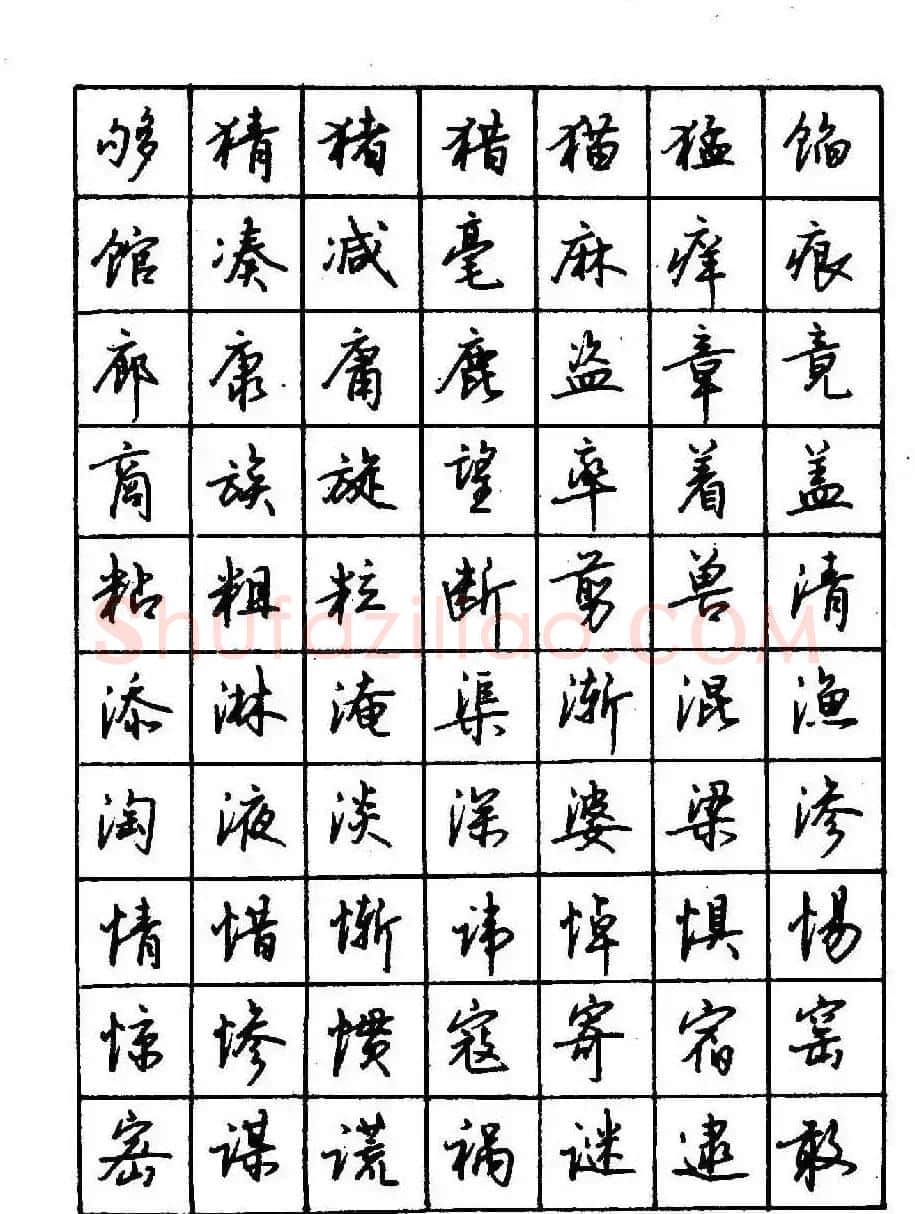 够 猜 猪 猎 猫 猛 馅
馆 凑 减 毫 麻 痒 痕
廊 康 庸 鹿 盗 章 竟
商 族 旋 望 率 着 盖
粘 粗 粒 断 剪 兽 清
Shufaziliao.COM
添 淋 淹 渠 渐 混 渔
淘 液 淡 深 婆 梁 渗
情 惜 惭 讳 悼 惧 惕
惊 惨 惯 寇 寄 宿 窑
密 谋 谎 祸 谜 逮 敢